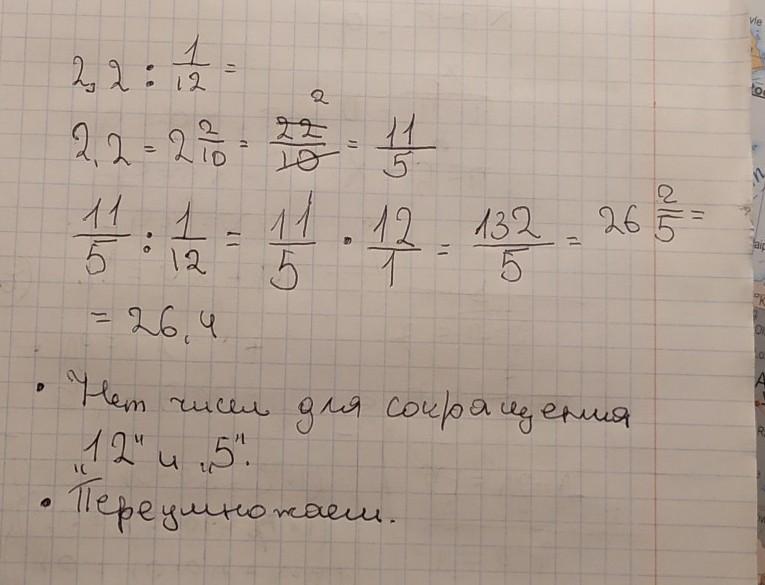 2,2 : 1/12 =
2
2,2 = 2 2/10 = 22/10 = 11/5
11/5 : 1/12 = 11/5 · 12/1 = 132/5 = 26 2/5 =
= 26,4
• Нет чисел для сокращения
„12" и „5".
• Переумножаем.